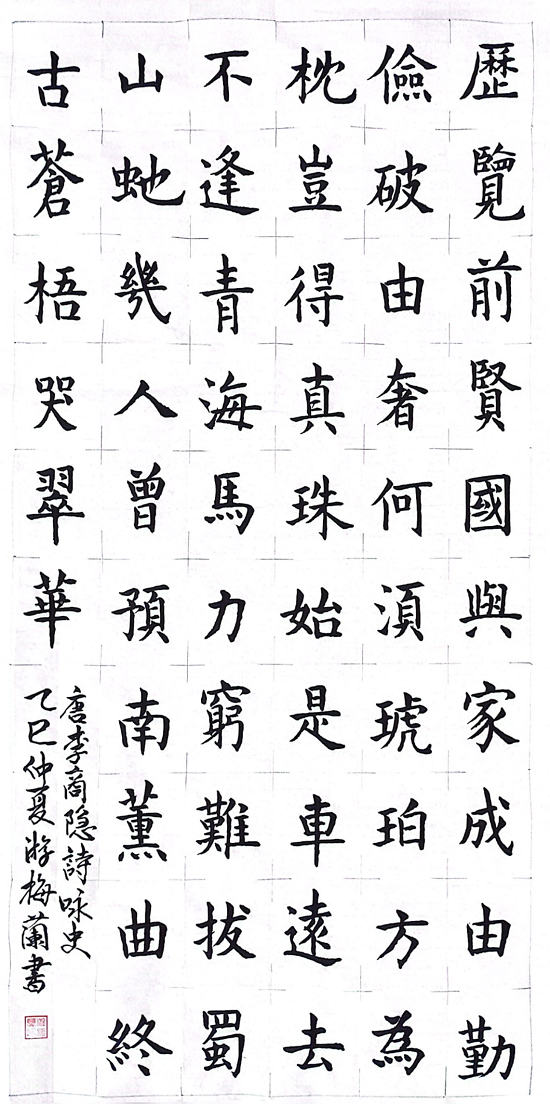 歷覽前賢國與家成由勤
儉破由奢何湏琥珀方為
枕豈得真珠始是車遠去
不逢青海馬力窮難拔蜀
山虵幾人曾預南薰曲終
古蒼梧哭翠華
唐李商隐詩咏史
乙巳仲夏游梅蘭書